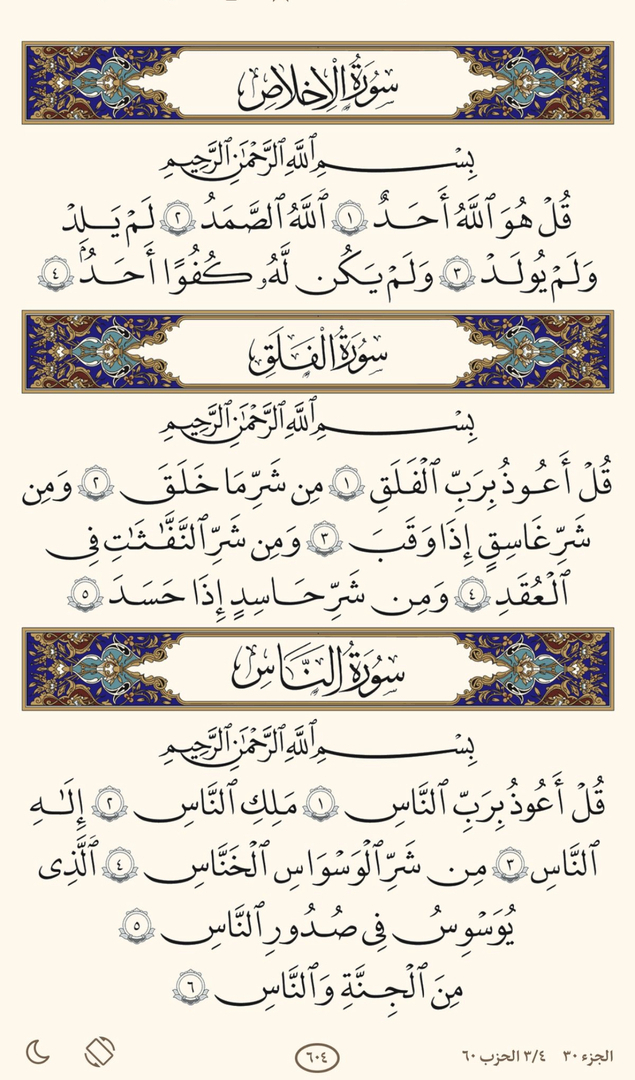 سُورَةُ الإِخْلَاصِ
بِسْمِ ٱللَّهِ ٱلرَّحْمَٰنِ ٱلرَّحِيمِ
قُلْ هُوَ ٱللَّهُ أَحَدٌ ١ ٱللَّهُ ٱلصَّمَدُ ٢ لَمْ يَلِدْ
وَلَمْ يُولَدْ ٣ وَلَمْ يَكُن لَّهُۥ كُفُوًا أَحَدٌۢ ٤
سُورَةُ الْفَلَقِ
بِسْمِ ٱللَّهِ ٱلرَّحْمَٰنِ ٱلرَّحِيمِ
قُلْ أَعُوذُ بِرَبِّ ٱلْفَلَقِ ١ مِن شَرِّ مَا خَلَقَ ٢ وَمِن
شَرِّ غَاسِقٍ إِذَا وَقَبَ ٣ وَمِن شَرِّ ٱلنَّفَّٰثَٰتِ فِى
ٱلْعُقَدِ ٤ وَمِن شَرِّ حَاسِدٍ إِذَا حَسَدَ ٥
سُورَةُ النَّاسِ
بِسْمِ ٱللَّهِ ٱلرَّحْمَٰنِ ٱلرَّحِيمِ
قُلْ أَعُوذُ بِرَبِّ ٱلنَّاسِ ١ مَلِكِ ٱلنَّاسِ ٢ إِلَٰهِ
ٱلنَّاسِ ٣ مِن شَرِّ ٱلْوَسْوَاسِ ٱلْخَنَّاسِ ٤ ٱلَّذِى
يُوَسْوِسُ فِى صُدُورِ ٱلنَّاسِ ٥
مِنَ ٱلْجِنَّةِ وَٱلنَّاسِ ٦
الجزء ٣٠ ٣/٤ الحزب ٦٠
٦٠٤